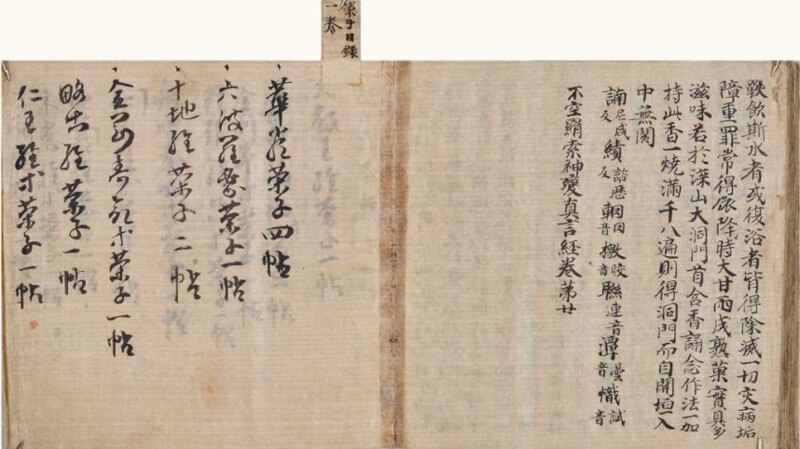 葉子目録
一巻
飲斯水者或復浴者皆得除滅一切灾病垢
障重罪常得依降時大甘雨成熟菓實具多
滋味若於深山大洞門首含香誦念作法一加
持此香一燒滿千八遍則得洞門而自開垣入
中無閡
諵尼咸反 績諮歷反 音 檄音 聮連音 潭曇音 幟試音
不空羂索神變真言經卷第廿
華 葉子四帖
六波羅蜜葉子一帖
十地経葉子二帖
金剛壽命等葉子一帖
略出経葉子一帖
仁王経等葉子一帖